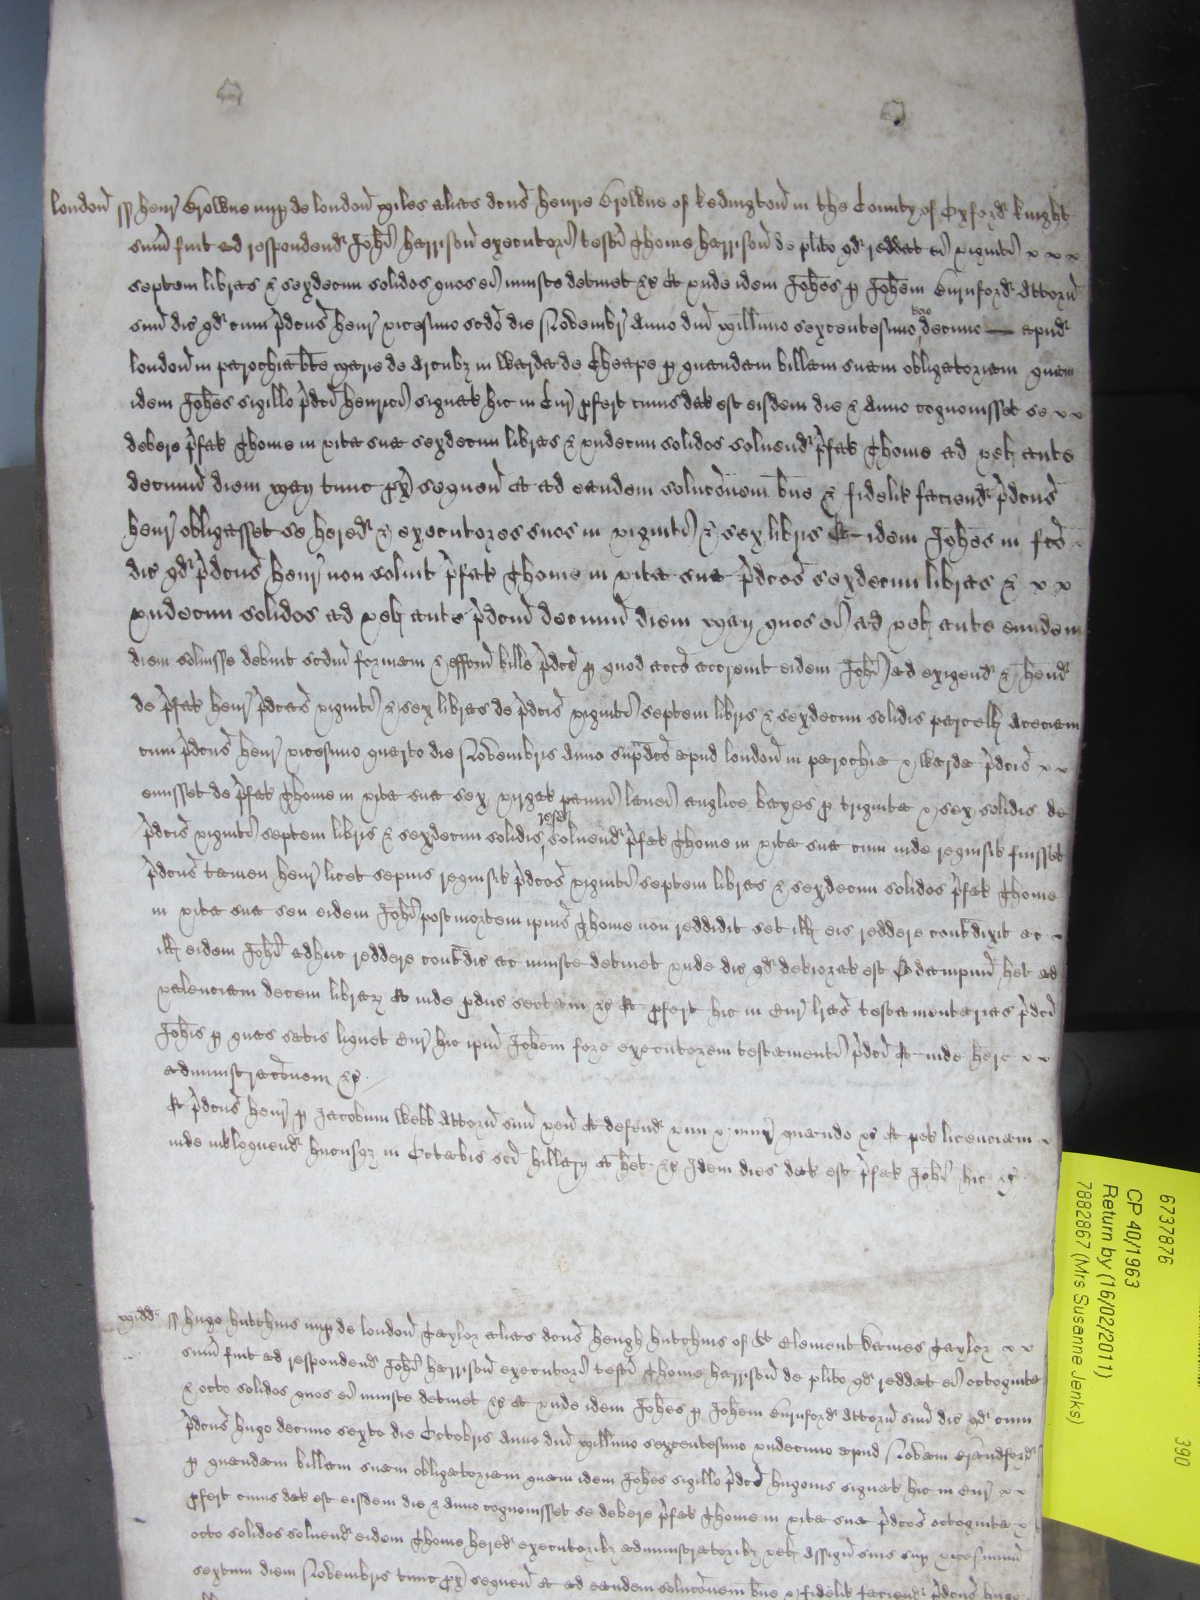 London ss Henr Browne nup de London Miles alias dcus Henrie Browne of Kedington in the County of Oxford knight
sum fuit ad respondend Johi Harrison executori testi Thome Harrison de plito qd reddat ei viginti x x x
septem libras & sexdecim solidos quos ei iniuste detinet &c Et unde idem Johes p Johem Burnford Attorn
suu dic qd cum pdcus Henr vicesimo scdo die Novembr Anno dni Millimo sexcentesimo decimo — apud
London in parochia bte Marie de Arcubz in Warda de Cheape p quandam billam suam obligatoriam quam
idem Johes sigillo pdci Henrici signat hic in Cur pfert cuius dat est eisdem die & Anno cognovisset se x x
debere pfat Thome in vita sua sexdecim libras & undecim solidos solvend pfat Thome ad vel ante
decimu diem May tunc px sequen et ad eandem soluconem bene & fidelit faciend pdcus
Henr obligasset se hered & executores suos in viginti & sex libris Et idem Johes in fco
dic qd pdcus Henr non solvit pfat Thome in vita sua pdcas sexdecim libras & x x
undecim solidos ad vel ante pdcum decimu diem May quos ei ad vel ante eundem
diem solvisse debuit scdm formam & effcm bille pdce p quod acco accrevit eidem Johi ad exigend & hend
de pfat Henr pdcas viginti & sex libras de pdcis viginti septem libris & sexdecim solidis parcell Aceciam
cum pdcus Henr vicesimo quarto die Novembris Anno supdco apud London in parochia & Warda pdcis x x
emisset de pfat Thome in vita sua sex virgat panni lanei anglice bayes p triginta & sex solidis de
pdcis viginti septem libris & sexdecim solidis resid solvend pfat Thome in vita sua cum inde requisit fuisset
pdcus tamen Henr licet sepius requisit pdcas viginti septem libras & sexdecim solidos pfat Thome
in vita sua seu eidem Johi post mortem ipius Thome non reddidit set ill eis reddere contdixit ac
ill eidem Johi adhuc reddere contdic ac iniuste detinet unde dic qd deteriorat est & dampnu het ad
valenciam decem librar Et inde pduc sectam &c Et pfert hic in Cur lras testamentarias pdci
Johis p quas satis liquet Cur hic ipm Johem fore executorem testamenti pdci Et inde here x x
administraconem &c
Et pdcus Henr p Jacobum Webb Attorn suu ven Et defend vim & iniur quando &c Et pet licenciam
inde inloquend hucusqz in Octabis sci Hillarij Et het &c Idem dies dat est pfat Johi hic &c
Midd ss Hugo Hutchins nup de London Taylor alias dcus Heugh Hutchins of St Clement Danes Taylor x x
sum fuit ad respondend Johi Harrison executori testi Thome Harrison de plito qd reddat ei octoginta
& octo solidos quos ei iniuste detinet &c Et unde idem Johes p Johem Burnford Attorn suu dic qd cum
pdcus Hugo decimo sexto die Octobris Anno dni Millimo sexcentesimo undecimo apud Novam Brandford
p quandam billam suam obligatoriam quam idem Johes sigillo pdci Hugonis signat hic in Cur x x
pfert cuius dat est eisdem die & anno cognovisset se debere pfat Thome in vita sua pdcos octoginta &
octo solidos solvend eidem Thome hered executoribz administratoribz vel assign suis sup vicesimum
sextum diem Novembris tunc px sequen Et ad eandem soluconem bene & fidelit faciend pdcus Hugo
6737876
CP 40/1963
Return by (16/02/2011)
7882867 (Mrs Susanne Jenks)
390